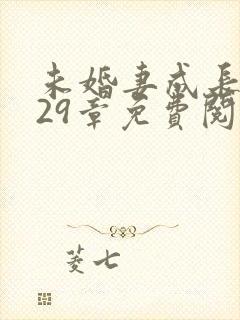 未婚妻成長
29章免費閱
菱七